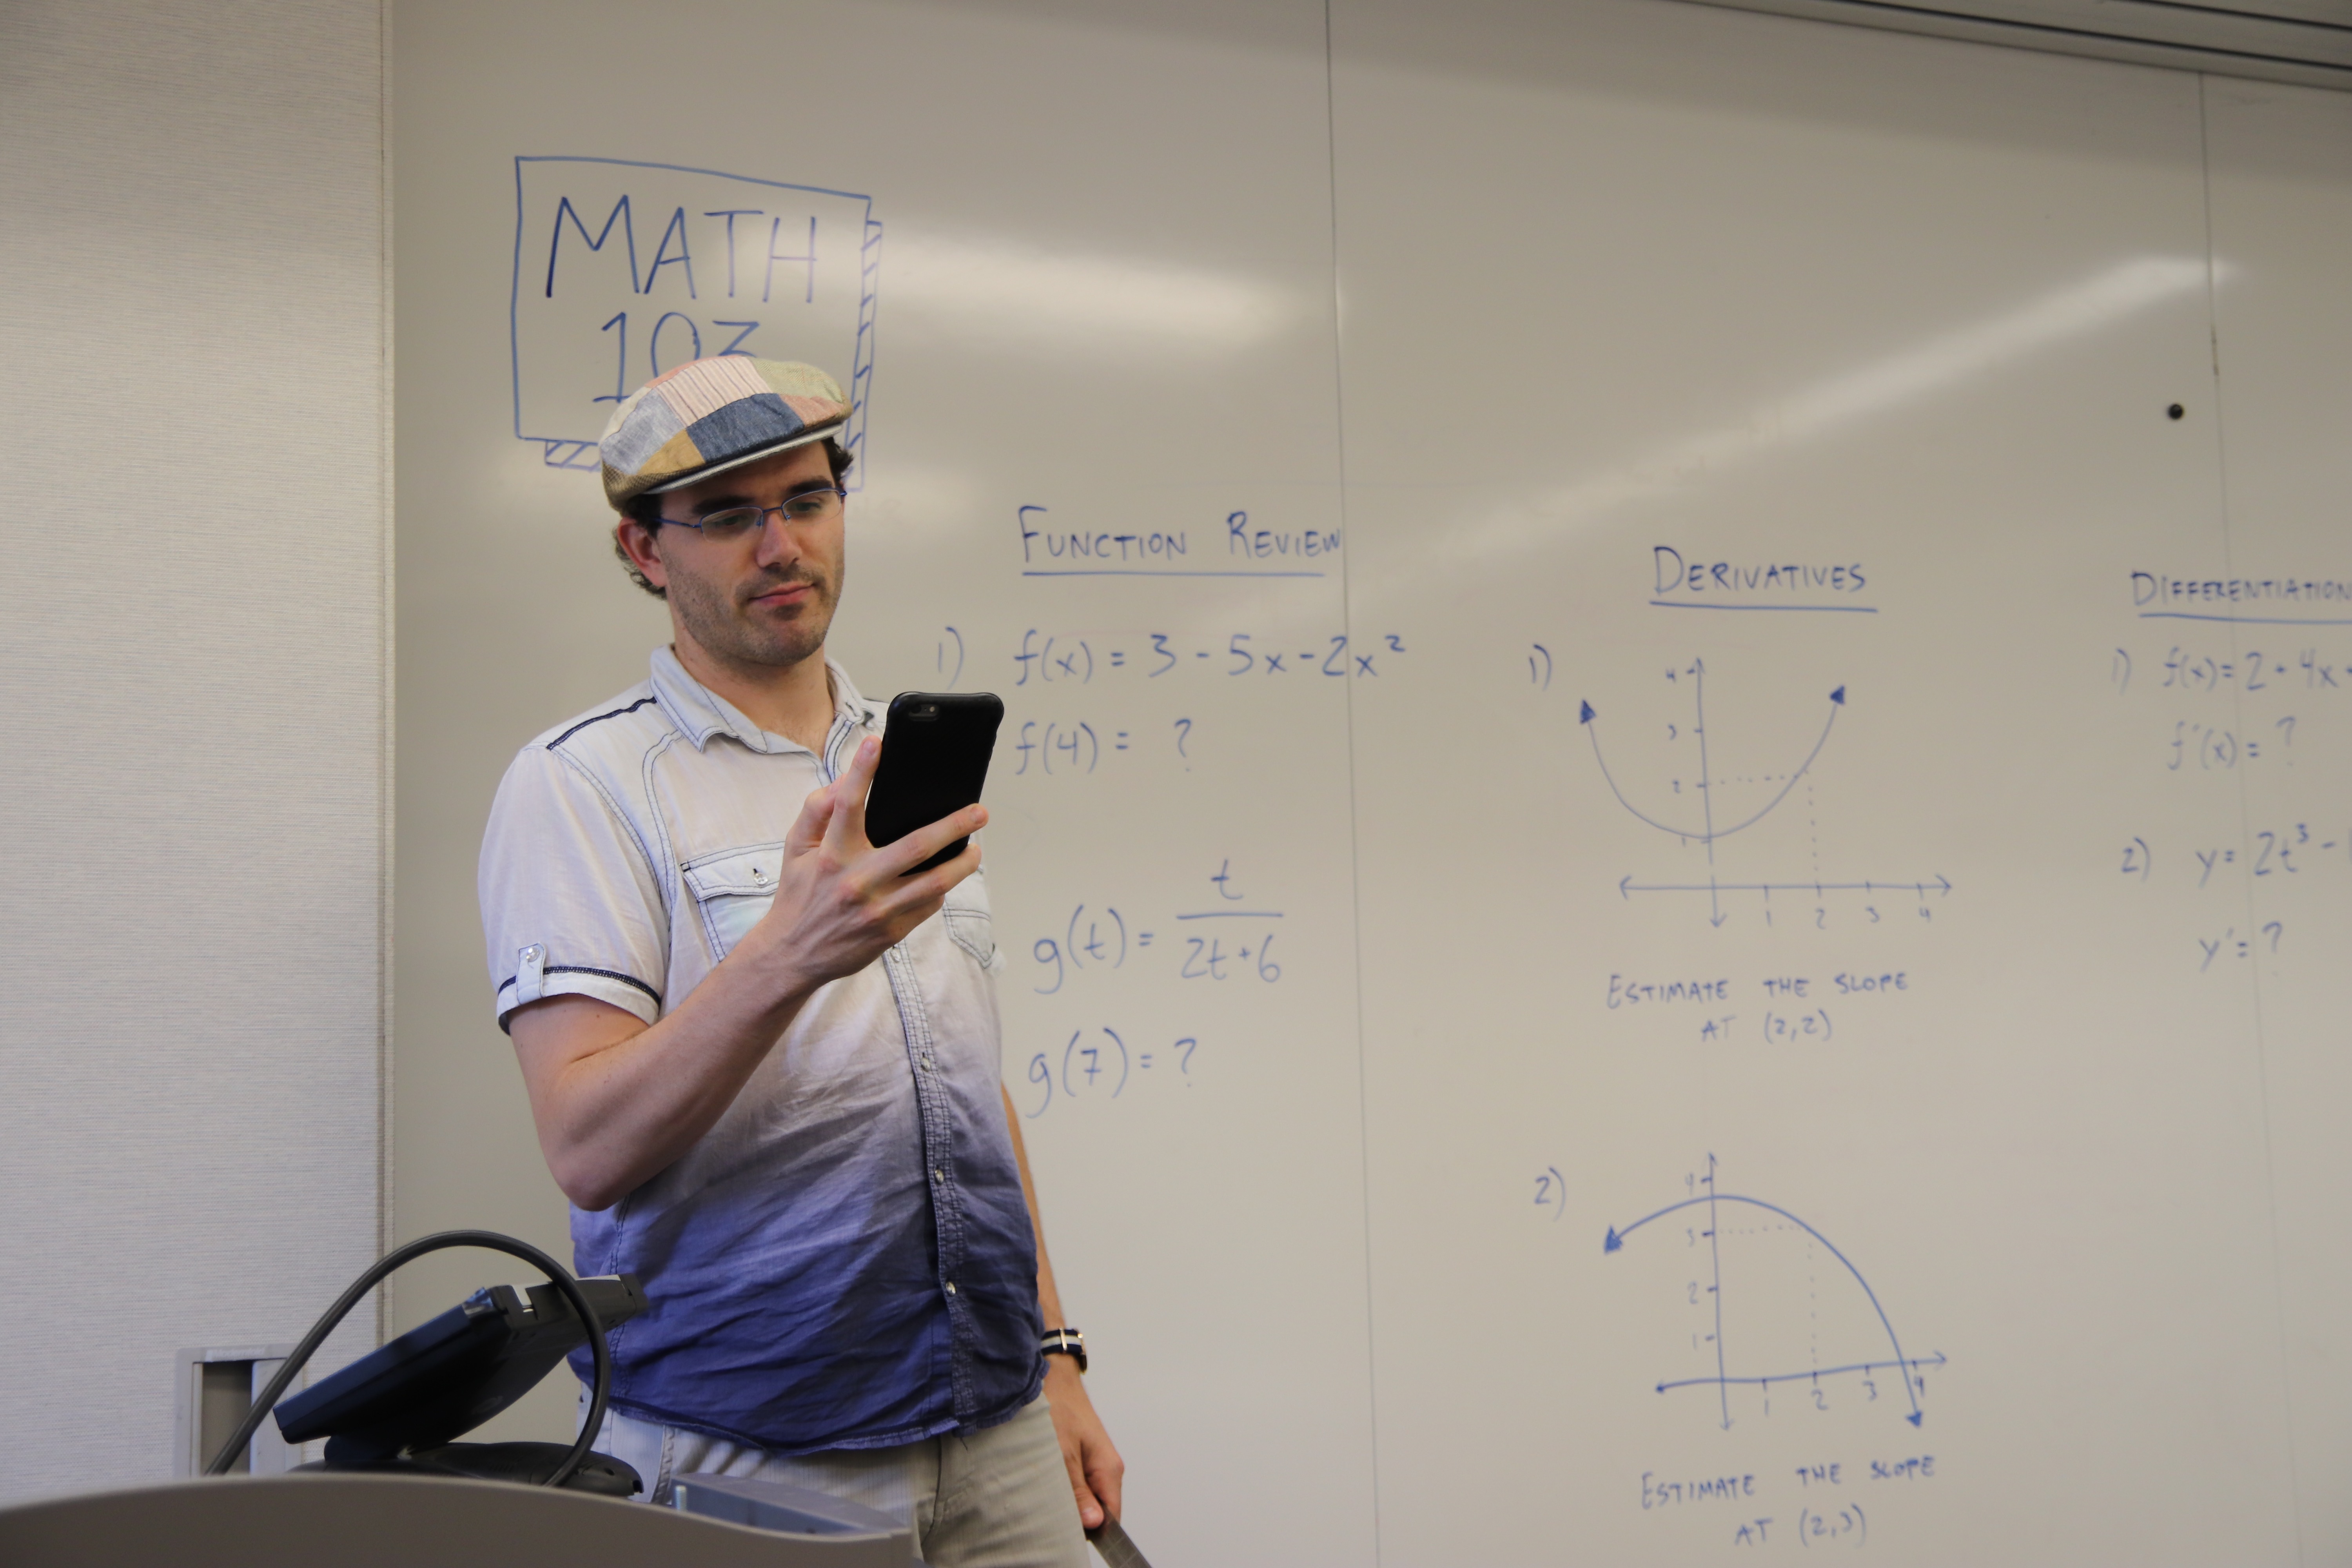 MATH
103
FUNCTION REVIEW
1) f(x) = 3 - 5x - 2x²
f(4) = ?
g(t) = t / (2t + 6)
g(7) = ?
DERIVATIVES
1)
4
3
2
1
1 2 3 4
ESTIMATE THE SLOPE
AT (2,2)
2)
4
3
2
1
1 2 3 4
ESTIMATE THE SLOPE
AT (2,3)
DIFFERENTIATION
1) f(x) = 2 + 4x
f'(x) = ?
2) y = 2t³ -
y' = ?